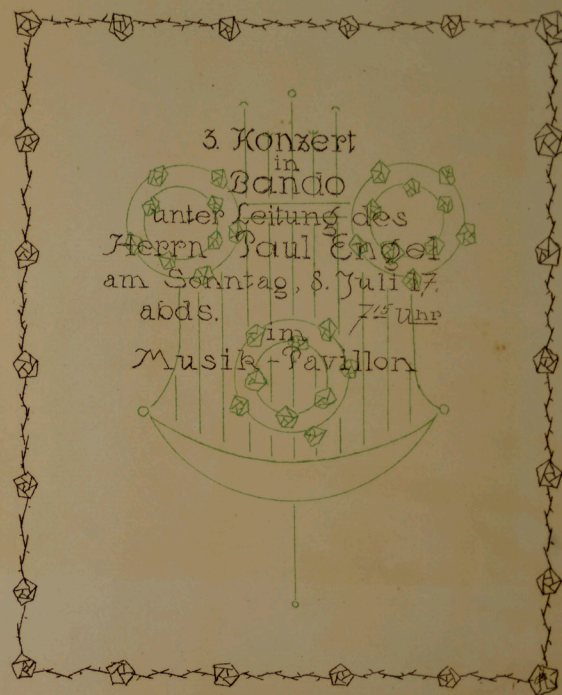 3. Konzert
in
Bando
unter Leitung des
Herrn Paul Engel
am Sonntag, 8. Juli 17.
abds. 7 15 Uhr
im
Musik-Pavillon